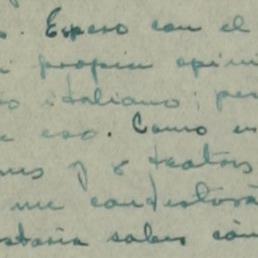 . Espero con el
propia opini
italiano; per
e eso. Como es
y teatros
me contestará
staria saber cóm